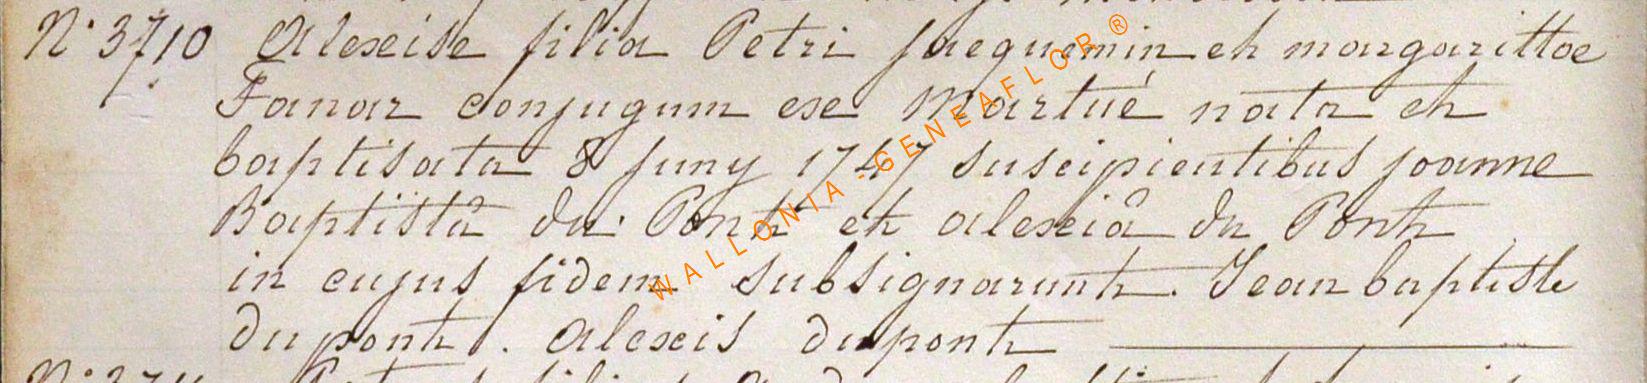 N° 3710 Alexise filia Petri Jacquemin et margarittae
Fanar conjugum ex Martué nata et
baptisata 8 juny 1747 suscipientibus joanne
Baptistâ du Pont et alexiâ du Pont
in cujus fidem subsignarunt. Jean baptiste
dupont. alexis dupont
WALLONIA-GENEAFLOR ®